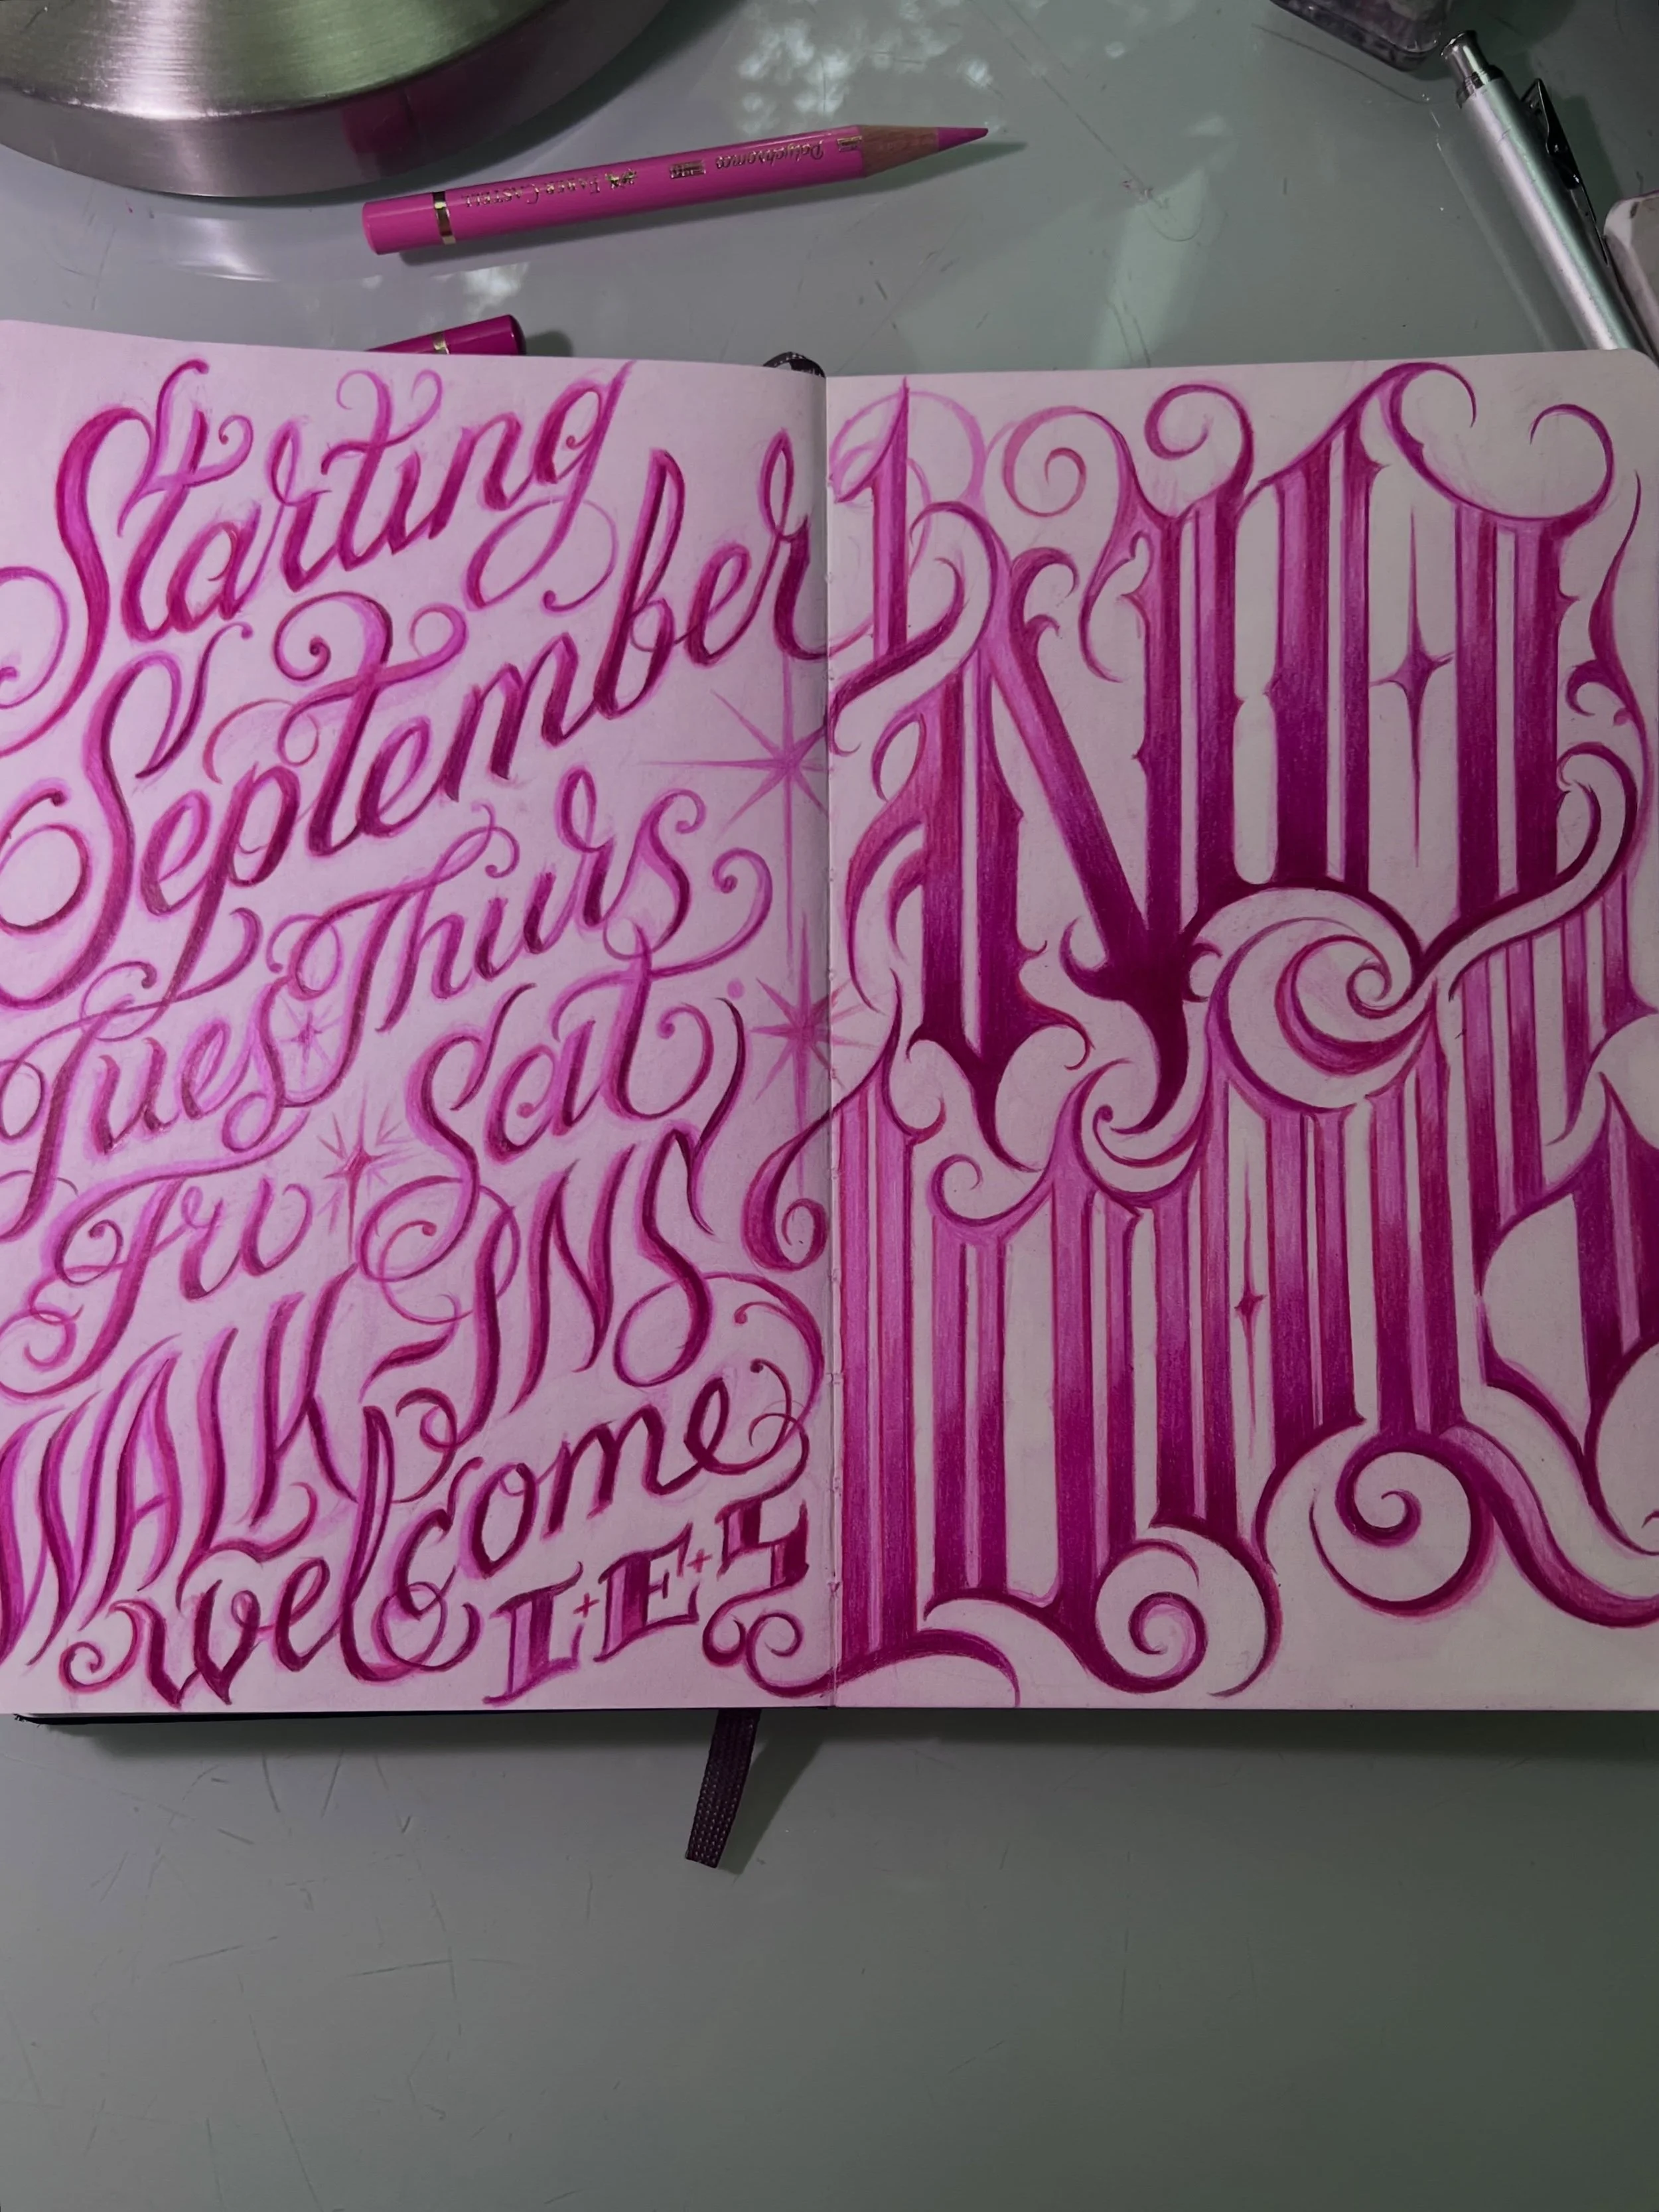 Polychromos FABER-CASTELL
Starting
September
Tues Thurs
Fri Sat
WALK-INS
welcome
L+E+S